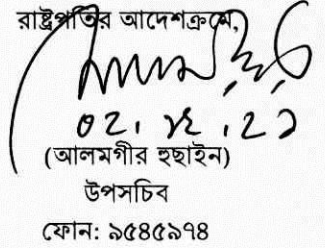 রাষ্ট্রপতির আদেশক্রমে,
(আলমগীর হুছাইন)
উপসচিব
ফোন: ৯৫৪৫৯৭৪